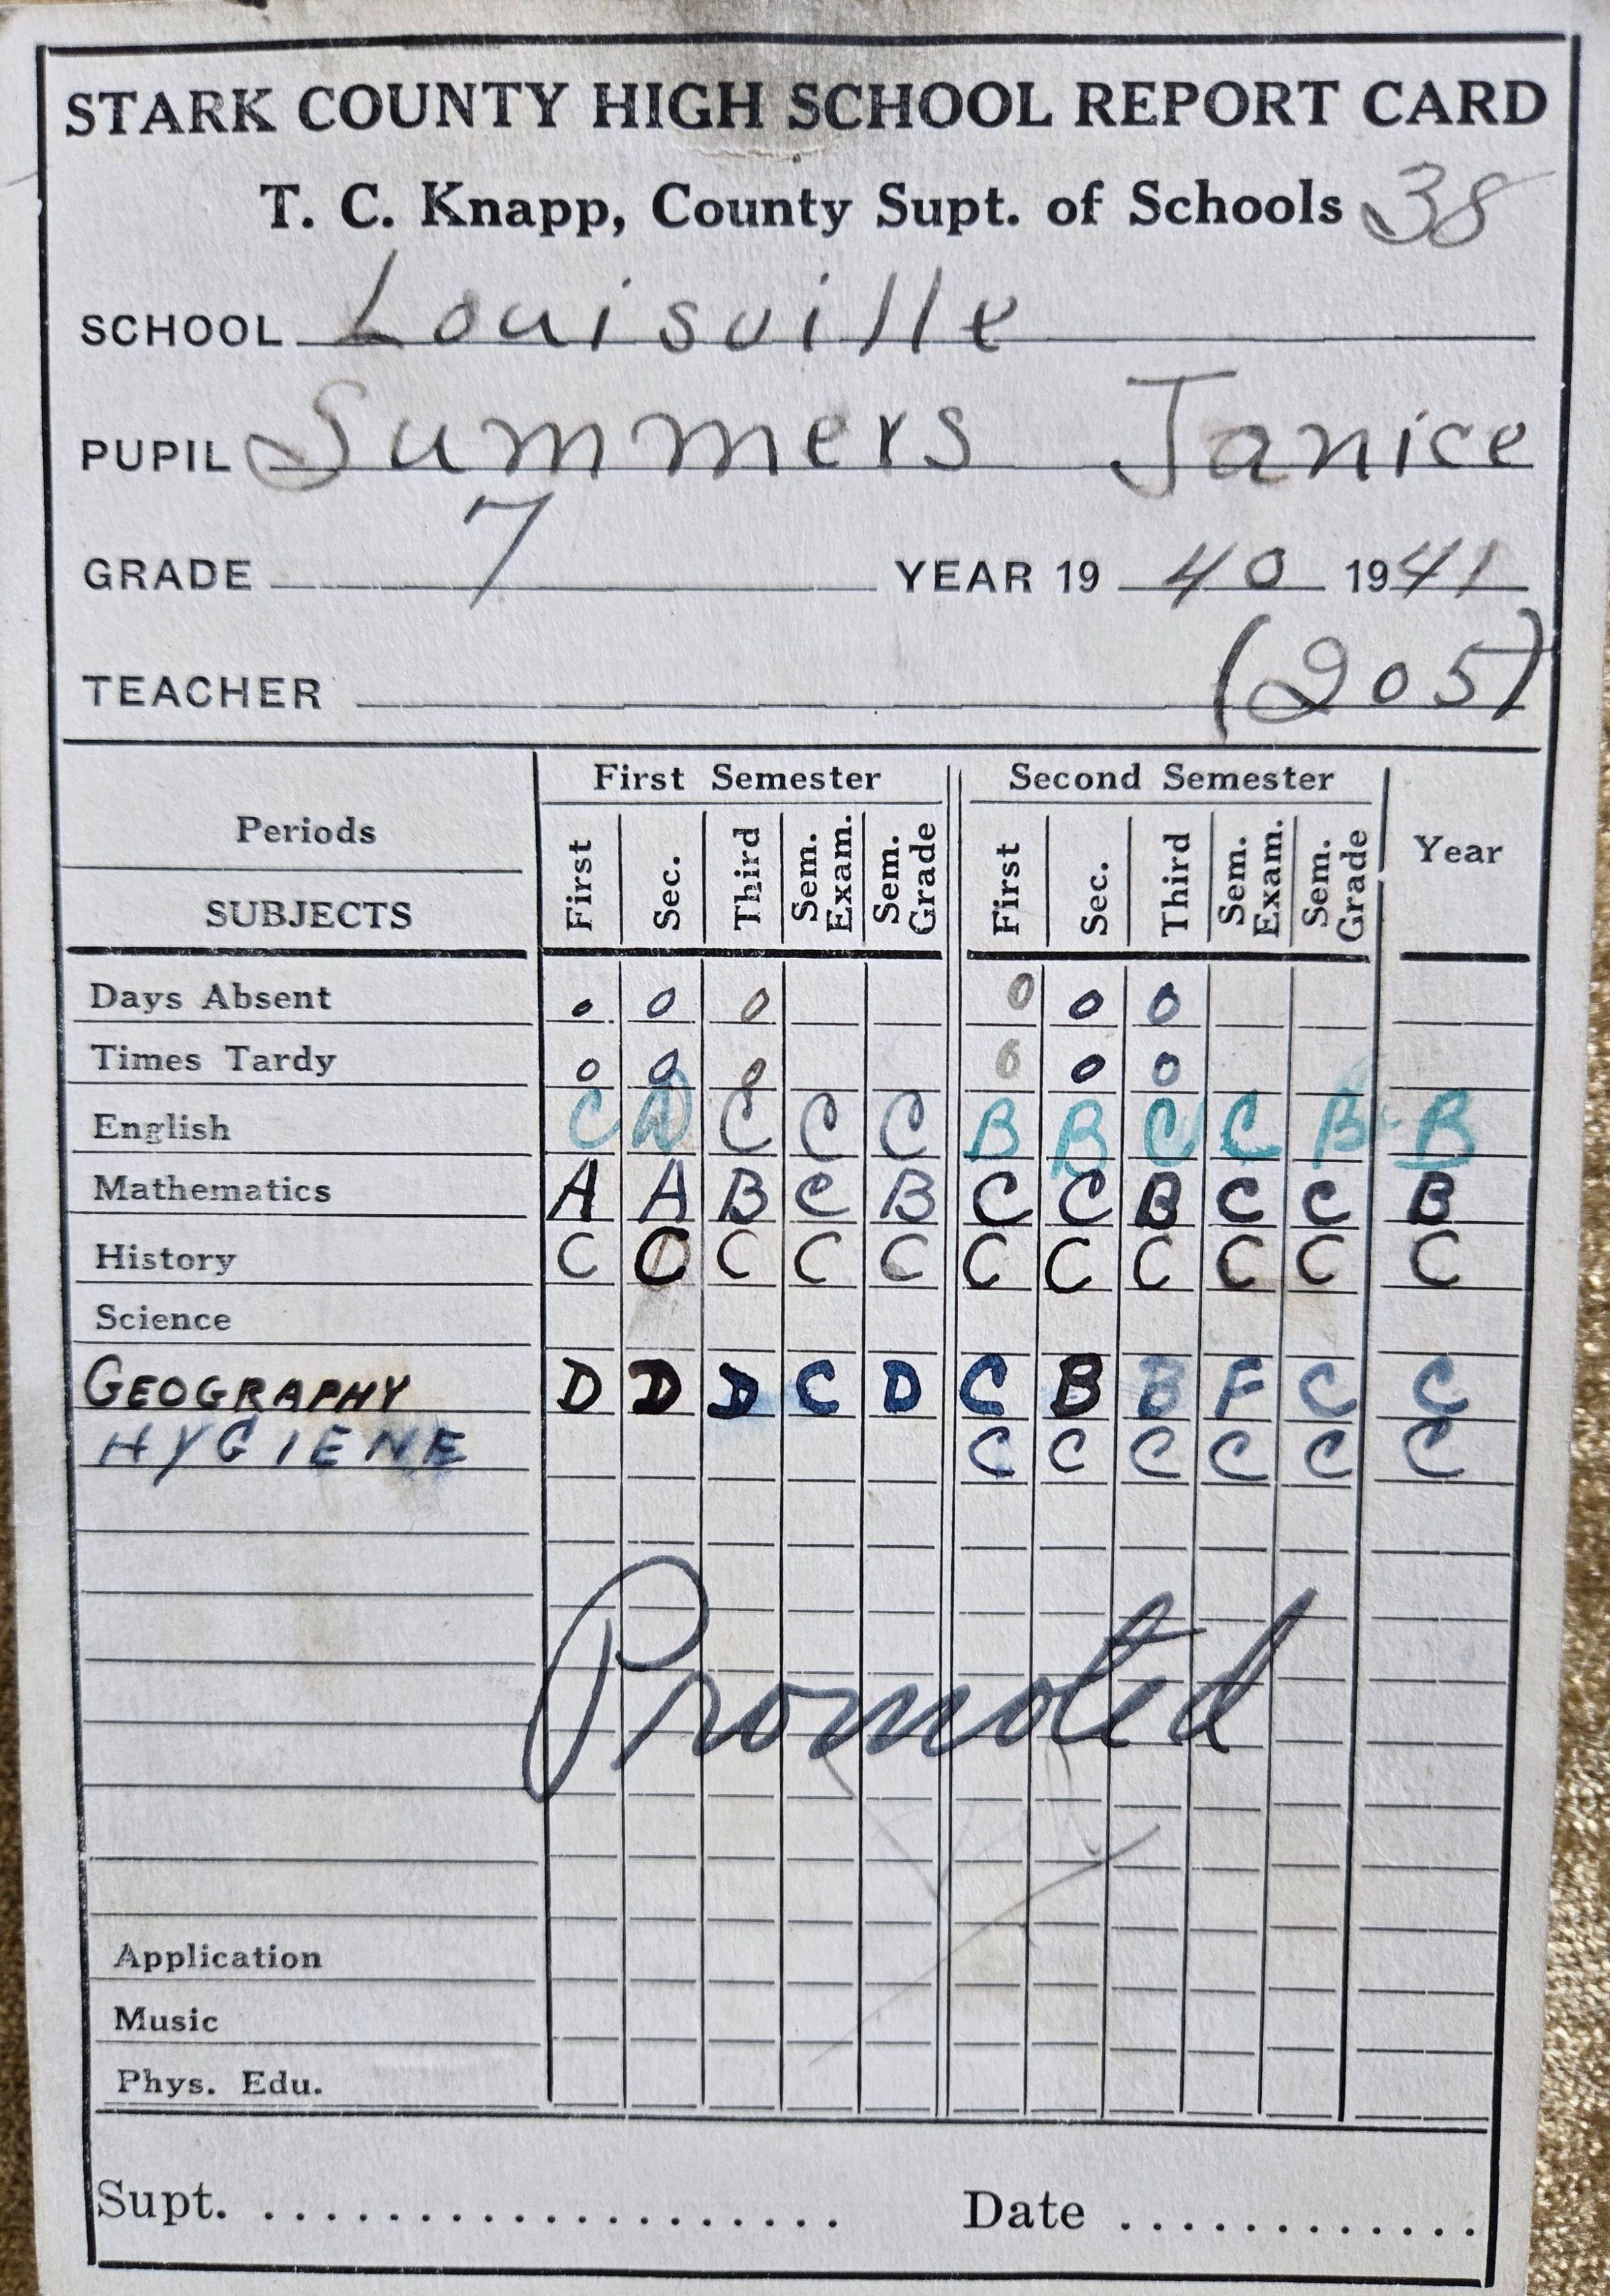 STARK COUNTY HIGH SCHOOL REPORT CARD
T. C. Knapp, County Supt. of Schools 38
SCHOOL Louisville
PUPIL Summers Janice
GRADE 7 YEAR 19 40 19 41
TEACHER (205)
First Semester Second Semester
Periods First Sec. Third Sem. Exam. Sem. Grade First Sec. Third Sem. Exam. Sem. Grade Year
SUBJECTS
Days Absent 0 0 0 0 0 0
Times Tardy 0 0 0 0 0 0
English C D C C C B B C C B B
Mathematics A A B C B C C B C C B
History C C C C C C C C C C C
Science
GEOGRAPHY D D D C D C B B F C C
HYGIENE C C C C C C
Promoted
Application
Music
Phys. Edu.
Supt. . . . . . . . . . . . . . . . . . . . . Date . . . . . . . . . . . . .